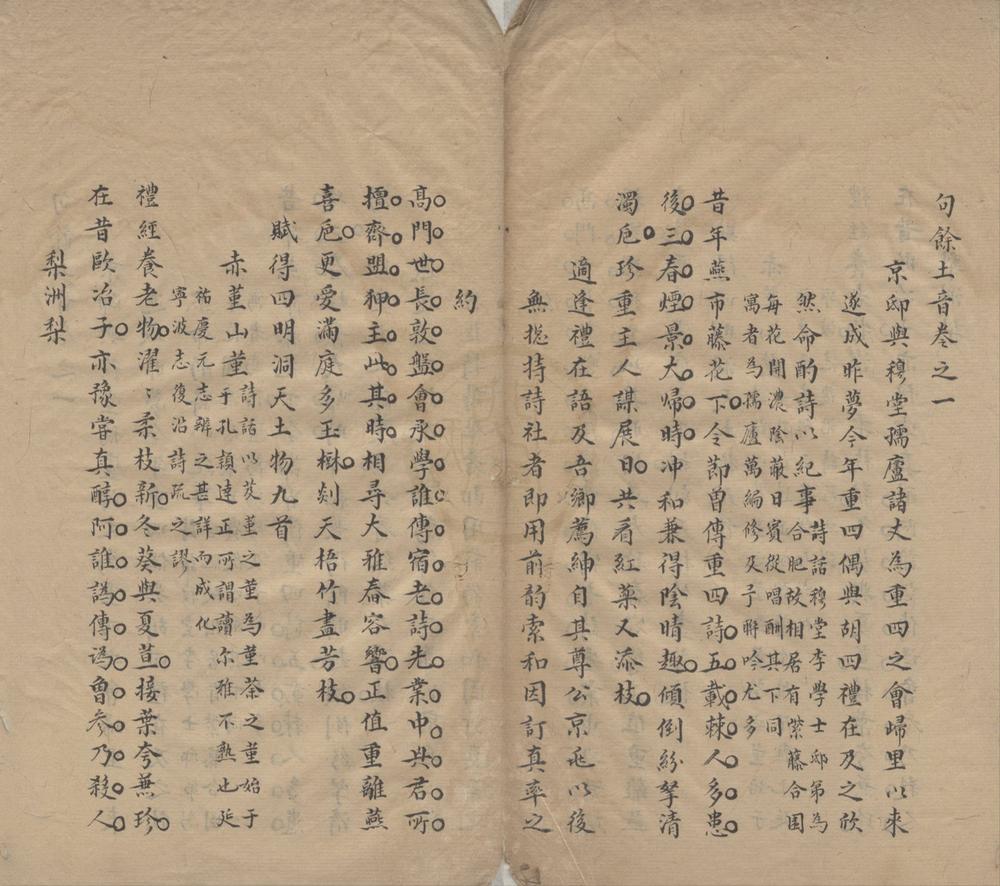 句餘土音卷之一
京邸與穆堂孺廬諸丈為重四之會歸里以來
遂成昨夢今年重四偶與胡四禮在及之欣
然命酌詩以紀事詩話穆堂李學士邸第為
合肥故相居有紫藤合圍
每花開濃陰蔽日賓從唱酬其下同
寓者為孺廬萬編修及予聯吟尤多
昔年燕市藤花下令節曾傳重四詩五載棘人多患
後三春煙景大歸時沖和兼得陰晴趣傾倒紛拏清
濁卮珍重主人謀展日共看紅藥又添枝
適逢禮在語及吾鄉薦紳自其尊公京兆以後
無揔持詩社者即用前韵索和因訂真率之
約
髙門世長敦盤會承學誰傳宿老詩先業中興君所
擅齋盟狎主此其時相尋大雅舂容響正值重離燕
喜卮更愛滿庭多玉樹剡天梧竹盡芳枝
賦得四明洞天土物九首
赤堇山堇詩話以芨堇之堇為堇荼之堇始于
于孔穎達正所謂讀尔雅不熟也延
祐慶元志辨之甚詳而成化
寧波志復沿詩疏之謬
禮經養老物濯〻柔枝新冬葵與夏荁接葉夸無珍
在昔歐冶子亦豫嘗真醇阿誰譌傳譌魯參乃殺人
梨洲梨